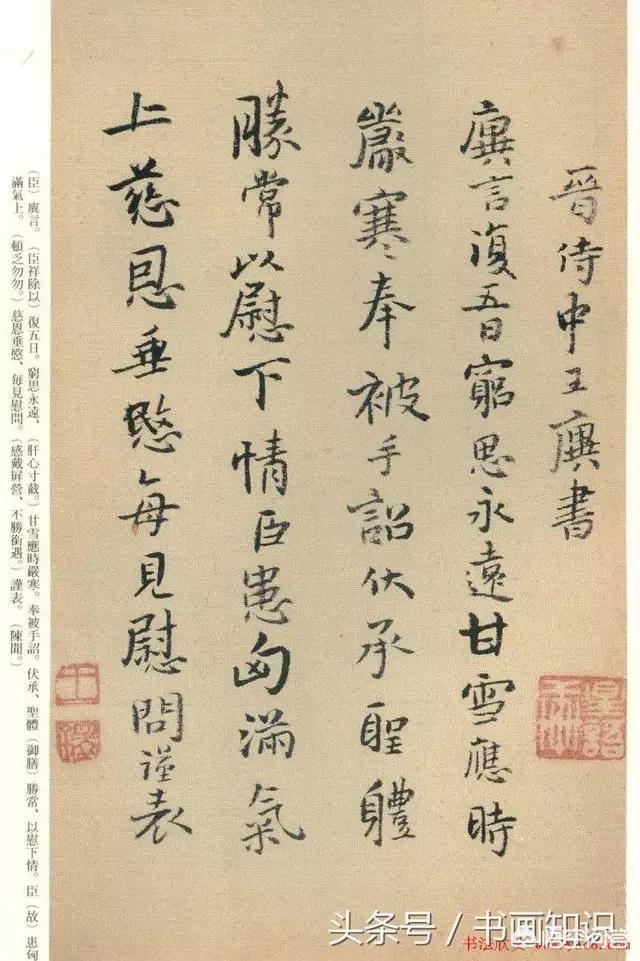 晉侍中王廙書
廙言復五日窮思永遠甘雪應時
嚴寒奉被手詔伏承聖體
勝常以慰下情臣患匈滿氣
上慈恩垂愍每見慰問謹表
（臣）廙言。（臣祥除以）復五日。窮思永遠、（肝心寸截。）甘雪應時嚴寒。奉被手詔。伏承、聖體（御膳）勝常、以慰下情。臣（故）患匈
滿氣上。（頓乏勿勿。）慈恩垂愍、每見慰問。（感戴屏營、不勝銜遇。）謹表。（陳聞。）
头条号／书画知识
书法欣